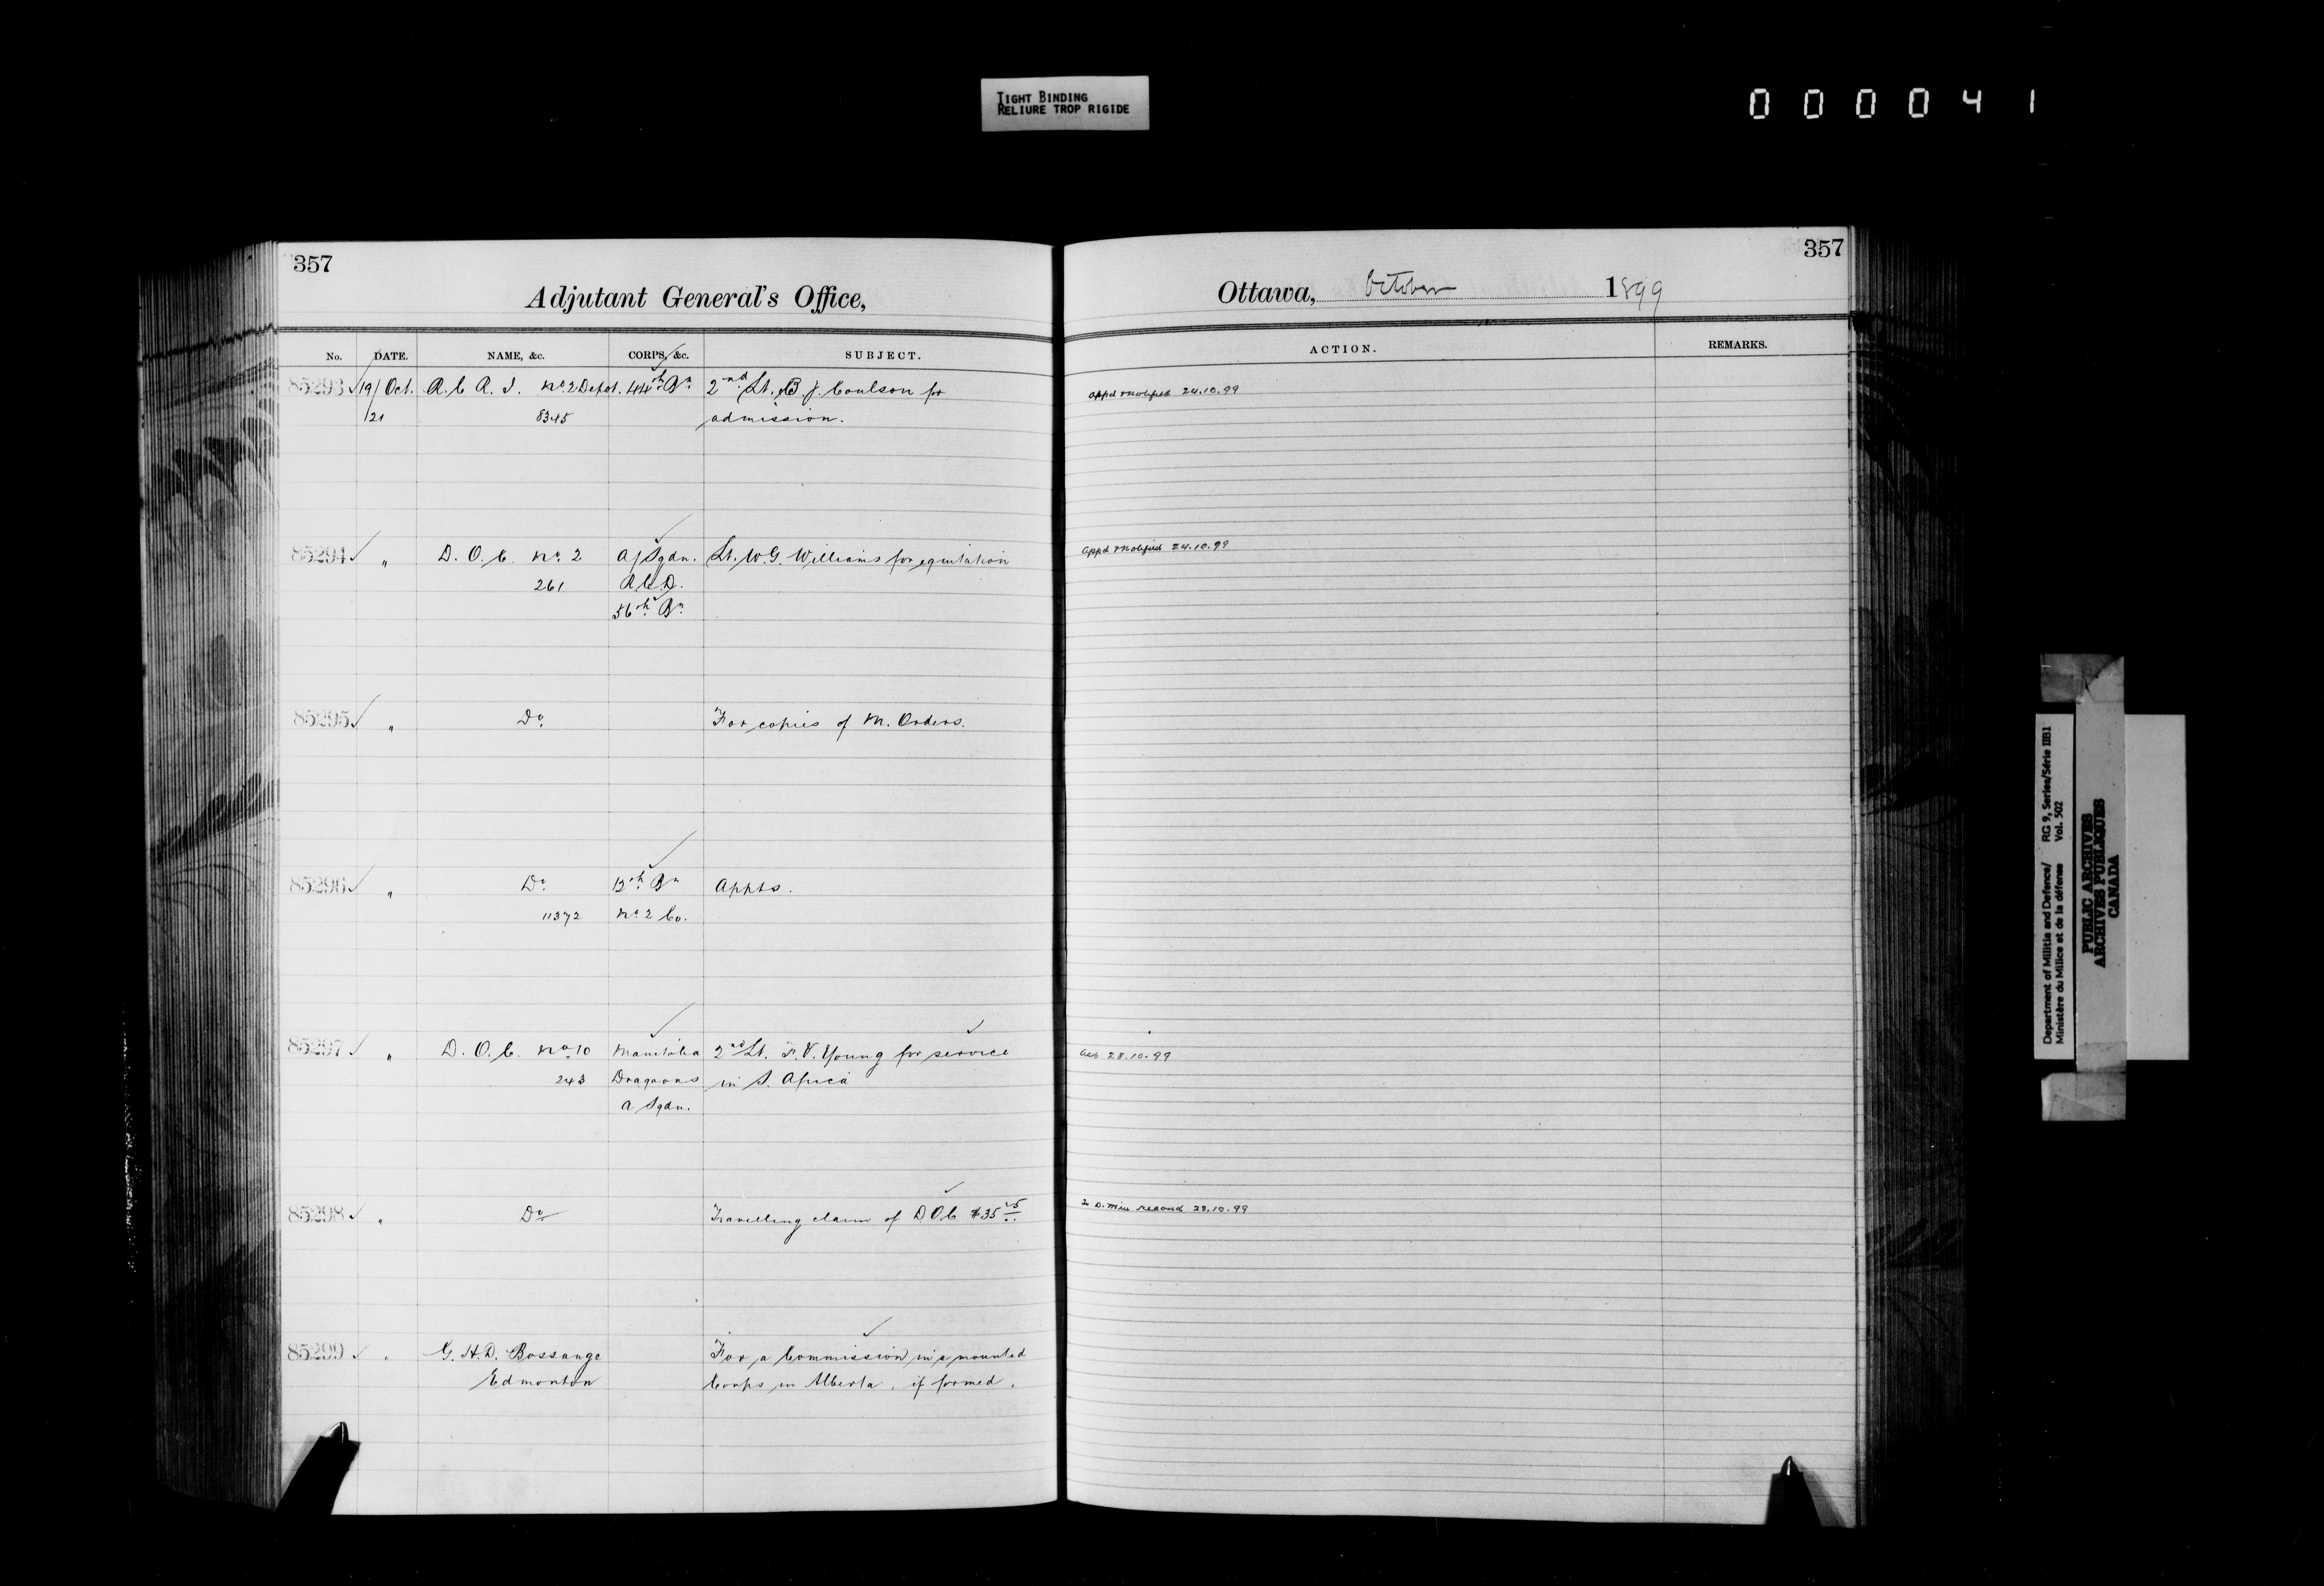 TIGHT BINDING
RELIURE TROP RIGIDE
000041
357
Adjutant General's Office,
No. DATE. NAME, &c. CORPS, &c. SUBJECT.
85293 19/21 Oct. R.C.R.I. No. 2 Depot. 44th Bn. 2nd Lt. B. J. Coulson for
8345 admission.
85294 " D.O.C. No. 2 A/Sqdn. Lt. W.G. Williams for equitation
261 R.C.D.
56th Bn.
85295 " Do. For copies of M. Orders.
85296 " Do. 12th Bn Appts.
11372 No. 2 Co.
85297 " D.O.C. No. 10 Manitoba 2nd Lt. F.V. Young for service
243 Dragoons in S. Africa
A Sqdn.
85298 " Do. Travelling claim of DOC $35
85299 " G.H.D. Bossange For a Commission in a mounted
Edmonton Corps in Alberta, if formed.
357
Ottawa, October 1899
ACTION. REMARKS.
Appd & Notified 24.10.99
Appd & Notified 24.10.99
28.10.99
28.10.99
Department of Militia and Defence/ RG 9, Series/Série IIB1
Ministère du Milice et de la défense Vol. 502
PUBLIC ARCHIVES
ARCHIVES PUBLIQUES
CANADA